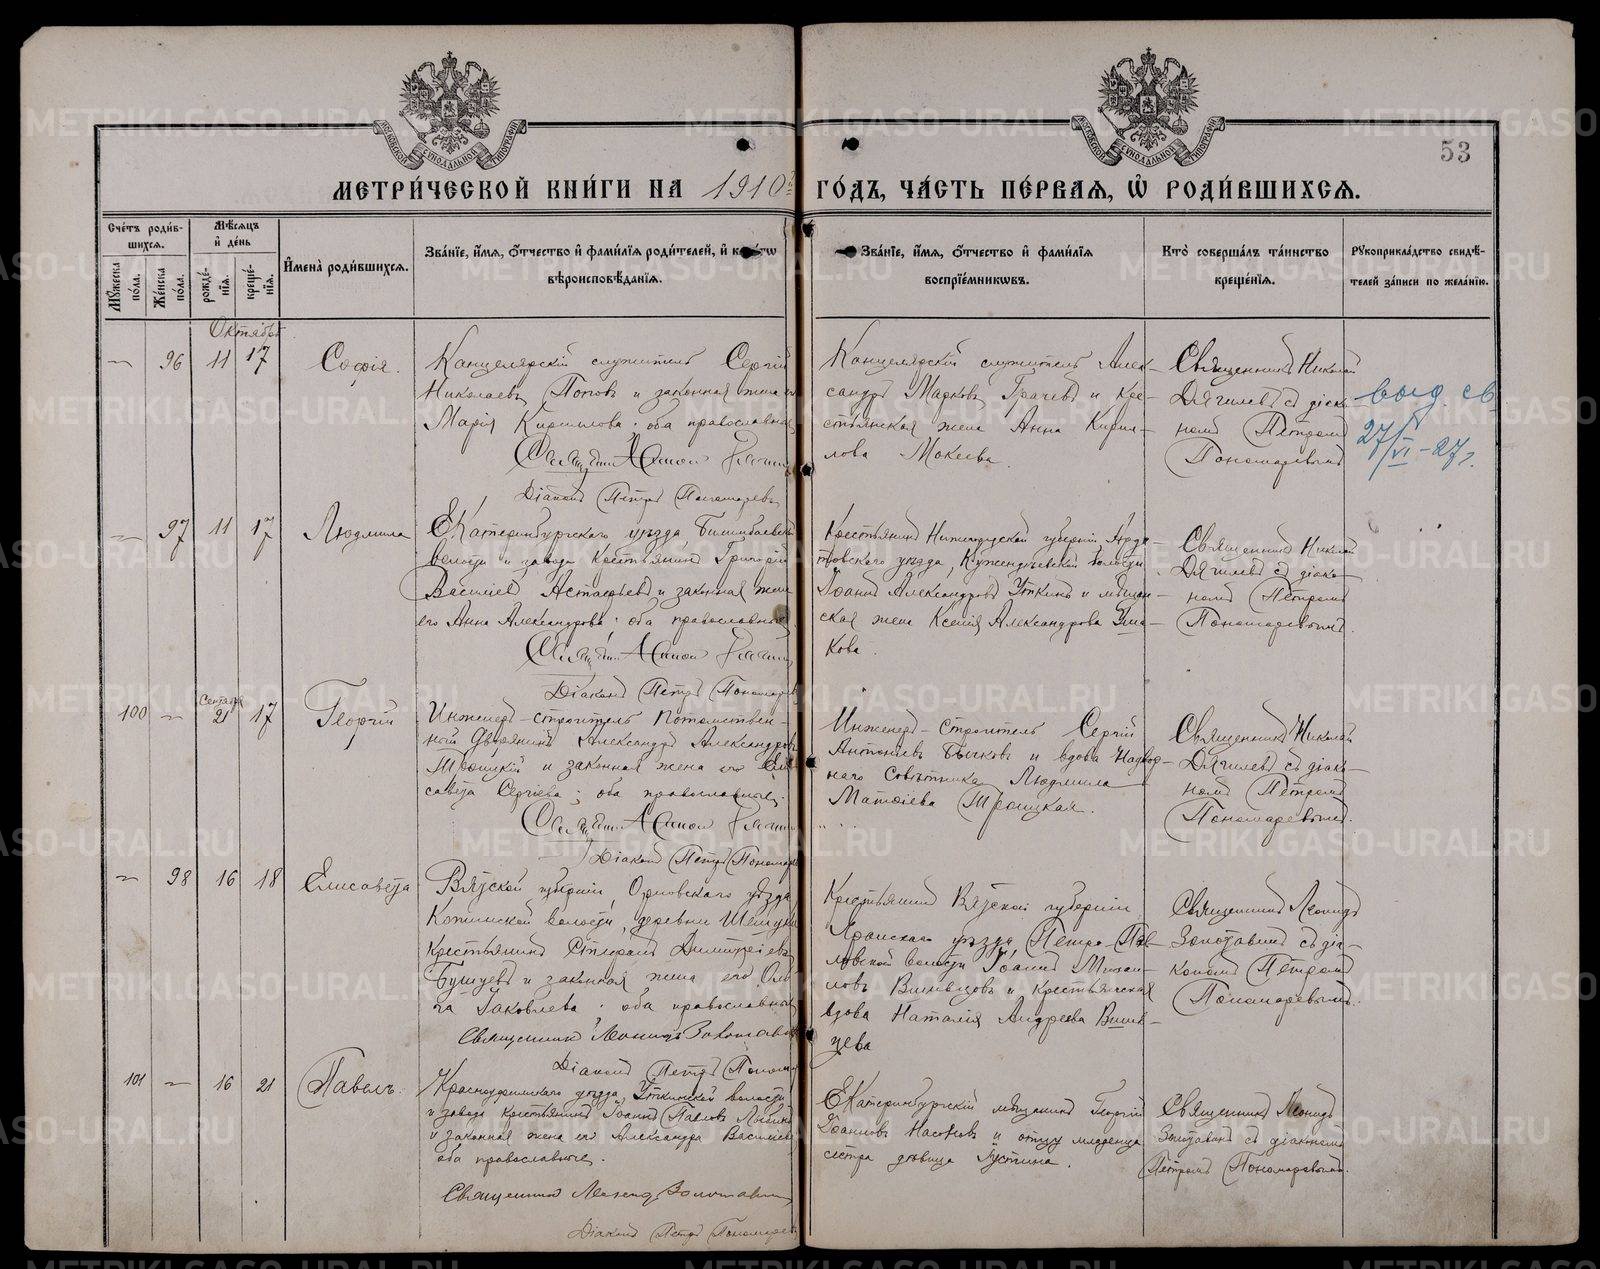 МОСКОВСКОЙ СѴНОДАЛЬНОЙ ТИПОГРАФІИ
МОСКОВСКОЙ СѴНОДАЛЬНОЙ ТИПОГРАФІИ
53
МЕТРИ́ЧЕСКОЙ КНИ́ГИ НА 1910 ГО́ДЪ, ЧА́СТЬ ПЕ́РВАЯ, Ѽ РОДИ́ВШИХСЯ.
Сче́тъ роди́вшихся.
Му́жеска по́ла.
Же́нска по́ла.
Мѣ́сяцъ и де́нь
рожде́нія.
креще́нія.
И҆мена̀ роди́вшихся.
Зва́ніе, и҆́мя, о҆́тчество и҆ фами́лія роди́телей, и҆
вѣроисповѣ́данія.
Зва́ніе, и҆́мя, о҆́тчество и҆ фами́лія
воспріе́мниковъ.
Кто̀ соверша́лъ та́инство
креще́нія.
Рукоприкла́дство свидѣ́-
телей за́писи по жела́нію.
Октября
— 96 11 17 Софія.
Канцелярскій служитель Сергій
Николаевъ Поповъ и законная жена
Марія Кириллова оба православные
Діаконъ Петръ Пономаревъ
Канцелярскій служитель Алек-
сандръ Марковъ Грачевъ и кре-
стьянская жена Анна Кирил-
лова Мокеева.
Священникъ Николай
Дягилевъ съ діако-
номъ Петромъ
Пономаревымъ
выд. св.
27/VI-27г.
— 97 11 17 Людмила
Екатеринбургскаго уѣзда, Билимбаевской
волости и завода крестьянинъ Григорій
Василіевъ Астафьевъ и законная жена
его Анна Александрова оба православные
Діаконъ Петръ Пономаревъ
Крестьянинъ Нижегородской губерніи Арда-
товскаго уѣзда, волости
Іоаннъ Александровъ Уткинъ и мѣщан-
ская жена Ксенія Александрова Уша-
кова.
Священникъ Николай
Дягилевъ съ діако-
номъ Петромъ
Пономаревымъ.
100 — Сентября 21 17 Георгій
Инженеръ-строитель потомствен-
ный дворянинъ Александръ Александровъ
Троицкій и законная жена его Ели-
савета Сергіева; оба православные.
Діаконъ Петръ Пономаревъ
Инженеръ-строитель Сергій
Антоніевъ Бычковъ и вдова Надвор-
наго Совѣтника Людмила
Матѳіева Троицкая.
Священникъ Николай
Дягилевъ съ діако-
номъ Петромъ
Пономаревымъ.
— 98 16 18 Елисавета
Вятской губерніи, Орловскаго уѣзда
волости, деревни
крестьянинъ Димитріевъ
и законная жена его Оль-
га Іаковлева оба православные
Священникъ Леонидъ
Діаконъ Петръ Пономаревъ
Крестьянинъ Вятской губерніи
Яранскаго уѣзда Петро-Пав-
ловской волости Іоаннъ Михаи-
ловъ и крестьянская
вдова Наталія Андреева
цева
Священникъ Леонидъ
съ діа-
кономъ Петромъ
Пономаревымъ.
101 — 16 21 Павелъ.
Красноуфимскаго уѣзда, Уткинской волости
и завода крестьянинъ Іоаннъ Павловъ
и законная жена его Александра Василіева
оба православные.
Священникъ Леонидъ
Діаконъ Петръ Пономаревъ
Екатеринбургскій мѣщанинъ Георгій
Іоанновъ Насоновъ и отцу младенца
сестра дѣвица Іустина.
Священникъ Леонидъ
съ діакономъ
Петромъ Пономаревымъ.
METRIKI.GASO-URAL.RU